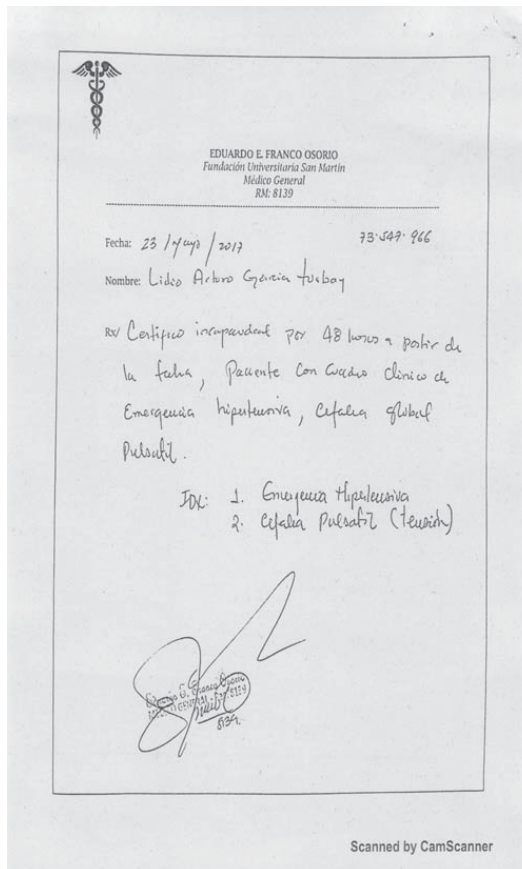 EDUARDO E. FRANCO OSORIO
Fundación Universitaria San Martín
Médico General
RM: 8139
Fecha: 23 / Mayo / 2017 73.547.966
Nombre: Lidio Arturo Garcia Turbay
Rx/ Certifico incapacidad por 48 horas a partir de
la fecha, Paciente con Cuadro Clinico de
Emergencia hipertensiva, Cefalea global
Pulsatil.
IDX: 1. Emergencia Hipertensiva
2. Cefalea Pulsatil (tensión)
Eduardo E. Franco Osorio
8139
Scanned by CamScanner